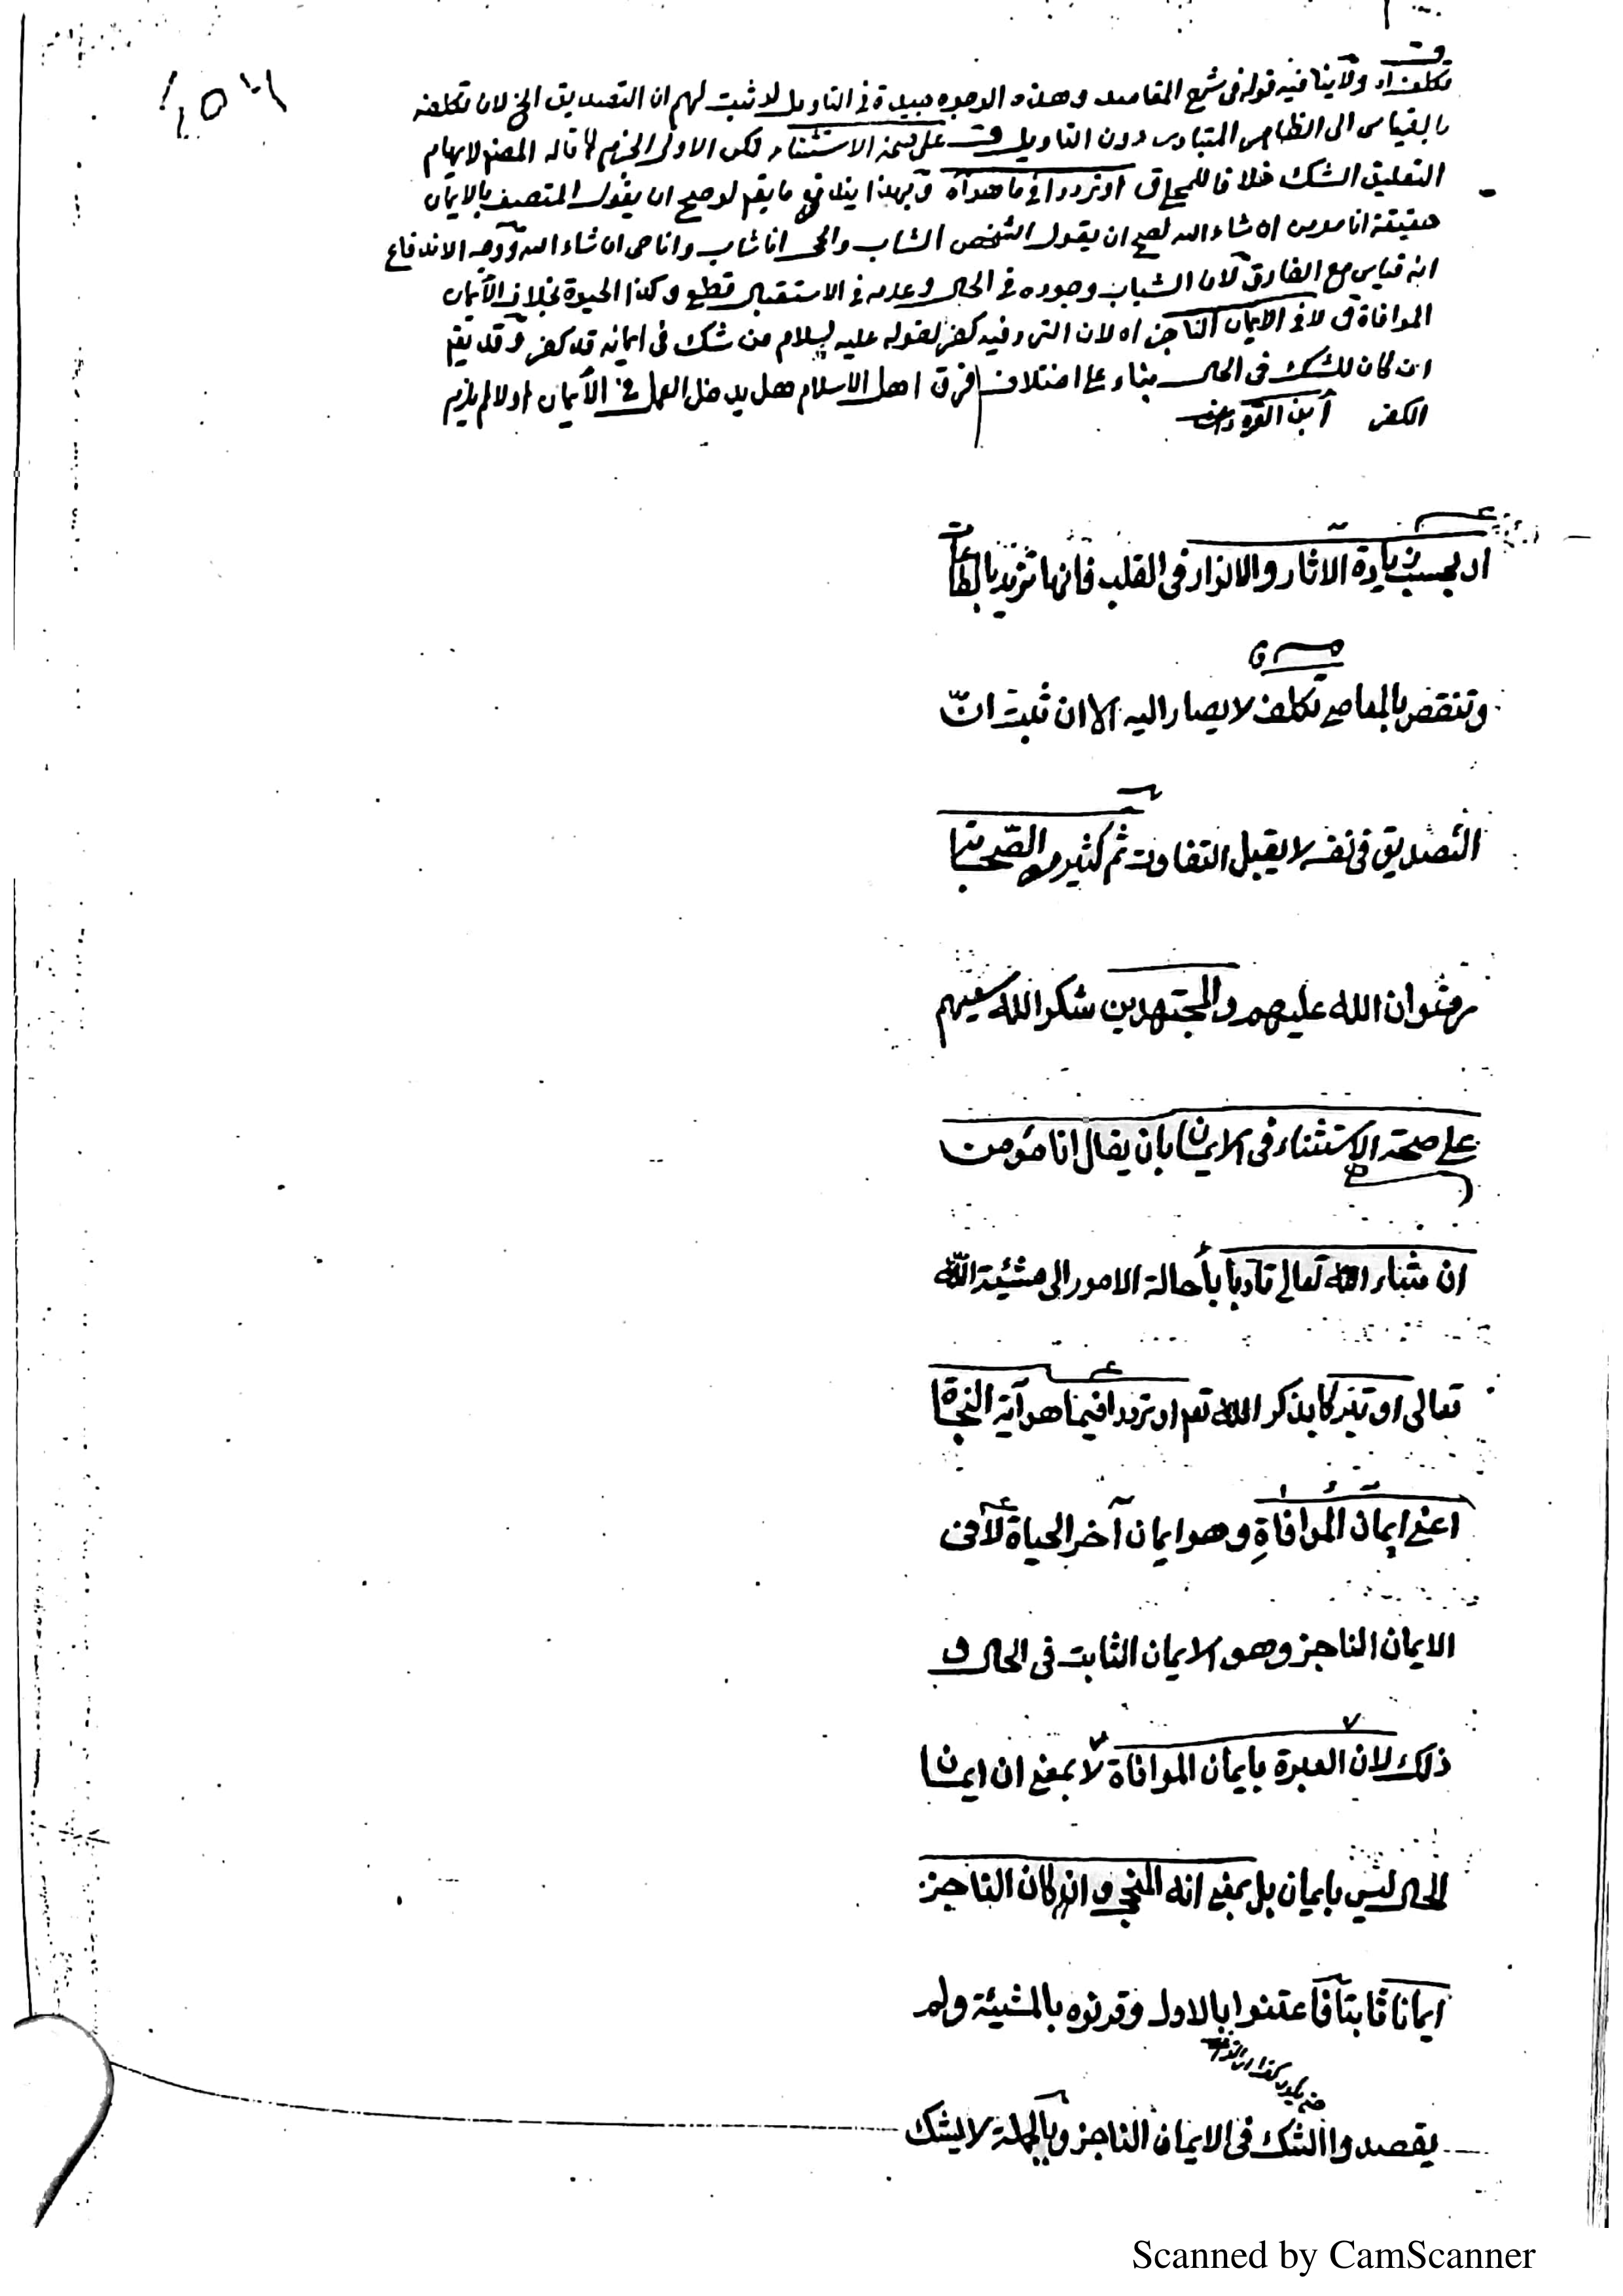 ٤٥٦
تكلف اه ولا ينافيه قوله فى شرح المقاصد وهذه الوجوه جيدة فى التاويل لو ثبت لهم ان التصديق الخ لان تكلفه
بالقياس الى الظاهر المتبادر دون التاويل على صحة الاستثناء لكن الاولى الجزم كما قاله المصنف لايهام
التعليق الشك خلافا اوترددا فى ما هو اه وبهذا يندفع ما يقم لو صح ان يقول المتصف بالايمان
حقيقة انا مومن ان شاء الله لصح ان يقول الشخص الشاب والحى انا شاب وانا حى ان شاء الله ووجه الاندفاع
انه قياس مع الفارق لان الشباب وجوده فى الحال وعدمه فى الاستقبال قطع وكذا الحيوة بخلاف الايمان
الموافاة لا فى الايمان الناجز اه لان التردد فيه كفر لقوله عليه لسلام من شك فى ايمانه قد كفر وقد يقم
ان كان للشك فى الحال بناء على اختلاف فرق اهل الاسلام هل يدخل العمل فى الايمان او لا لم يلزم
الكفر ابن القره داغى
او بحسب زيادة الاثار والانوار فى القلب فانها تزيد بالطاعات
وتنقص بالمعاصى تكلف لا يصار اليه الا ان ثبت انّ
التصديق فى نفسه لا يقبل التفاوت ثم كثير من الصّحابة
رضوان الله عليهم والمجتهدين شكر الله سعيهم
على صحة الاستثناء فى الايمان بان يقال انا مؤمن
ان شاء الله تعالى تأدبا بأحالة الامور الى مشيئة اللّه
تعالى او تبركا بذكر الله تعم او ترددا فيما هو آية النجاة
اعنى ايمان الموافاةِ وهو ايمان آخر الحياة لا فى
الايمان الناجز وهو الايمان الثابت فى الحال و
ذلك لان العبرة بايمان الموافاة لا بمعنى ان ايمان
الحال ليس بايمان بل بمعنى انه المنجى وان كان الناجز
ايمانا ثابتا فاعتنوا بالاول وقرنوه بالمشيئة ولم
يقصدوا الشك فى الايمان الناجز وبالجملة لا يشك
Scanned by CamScanner